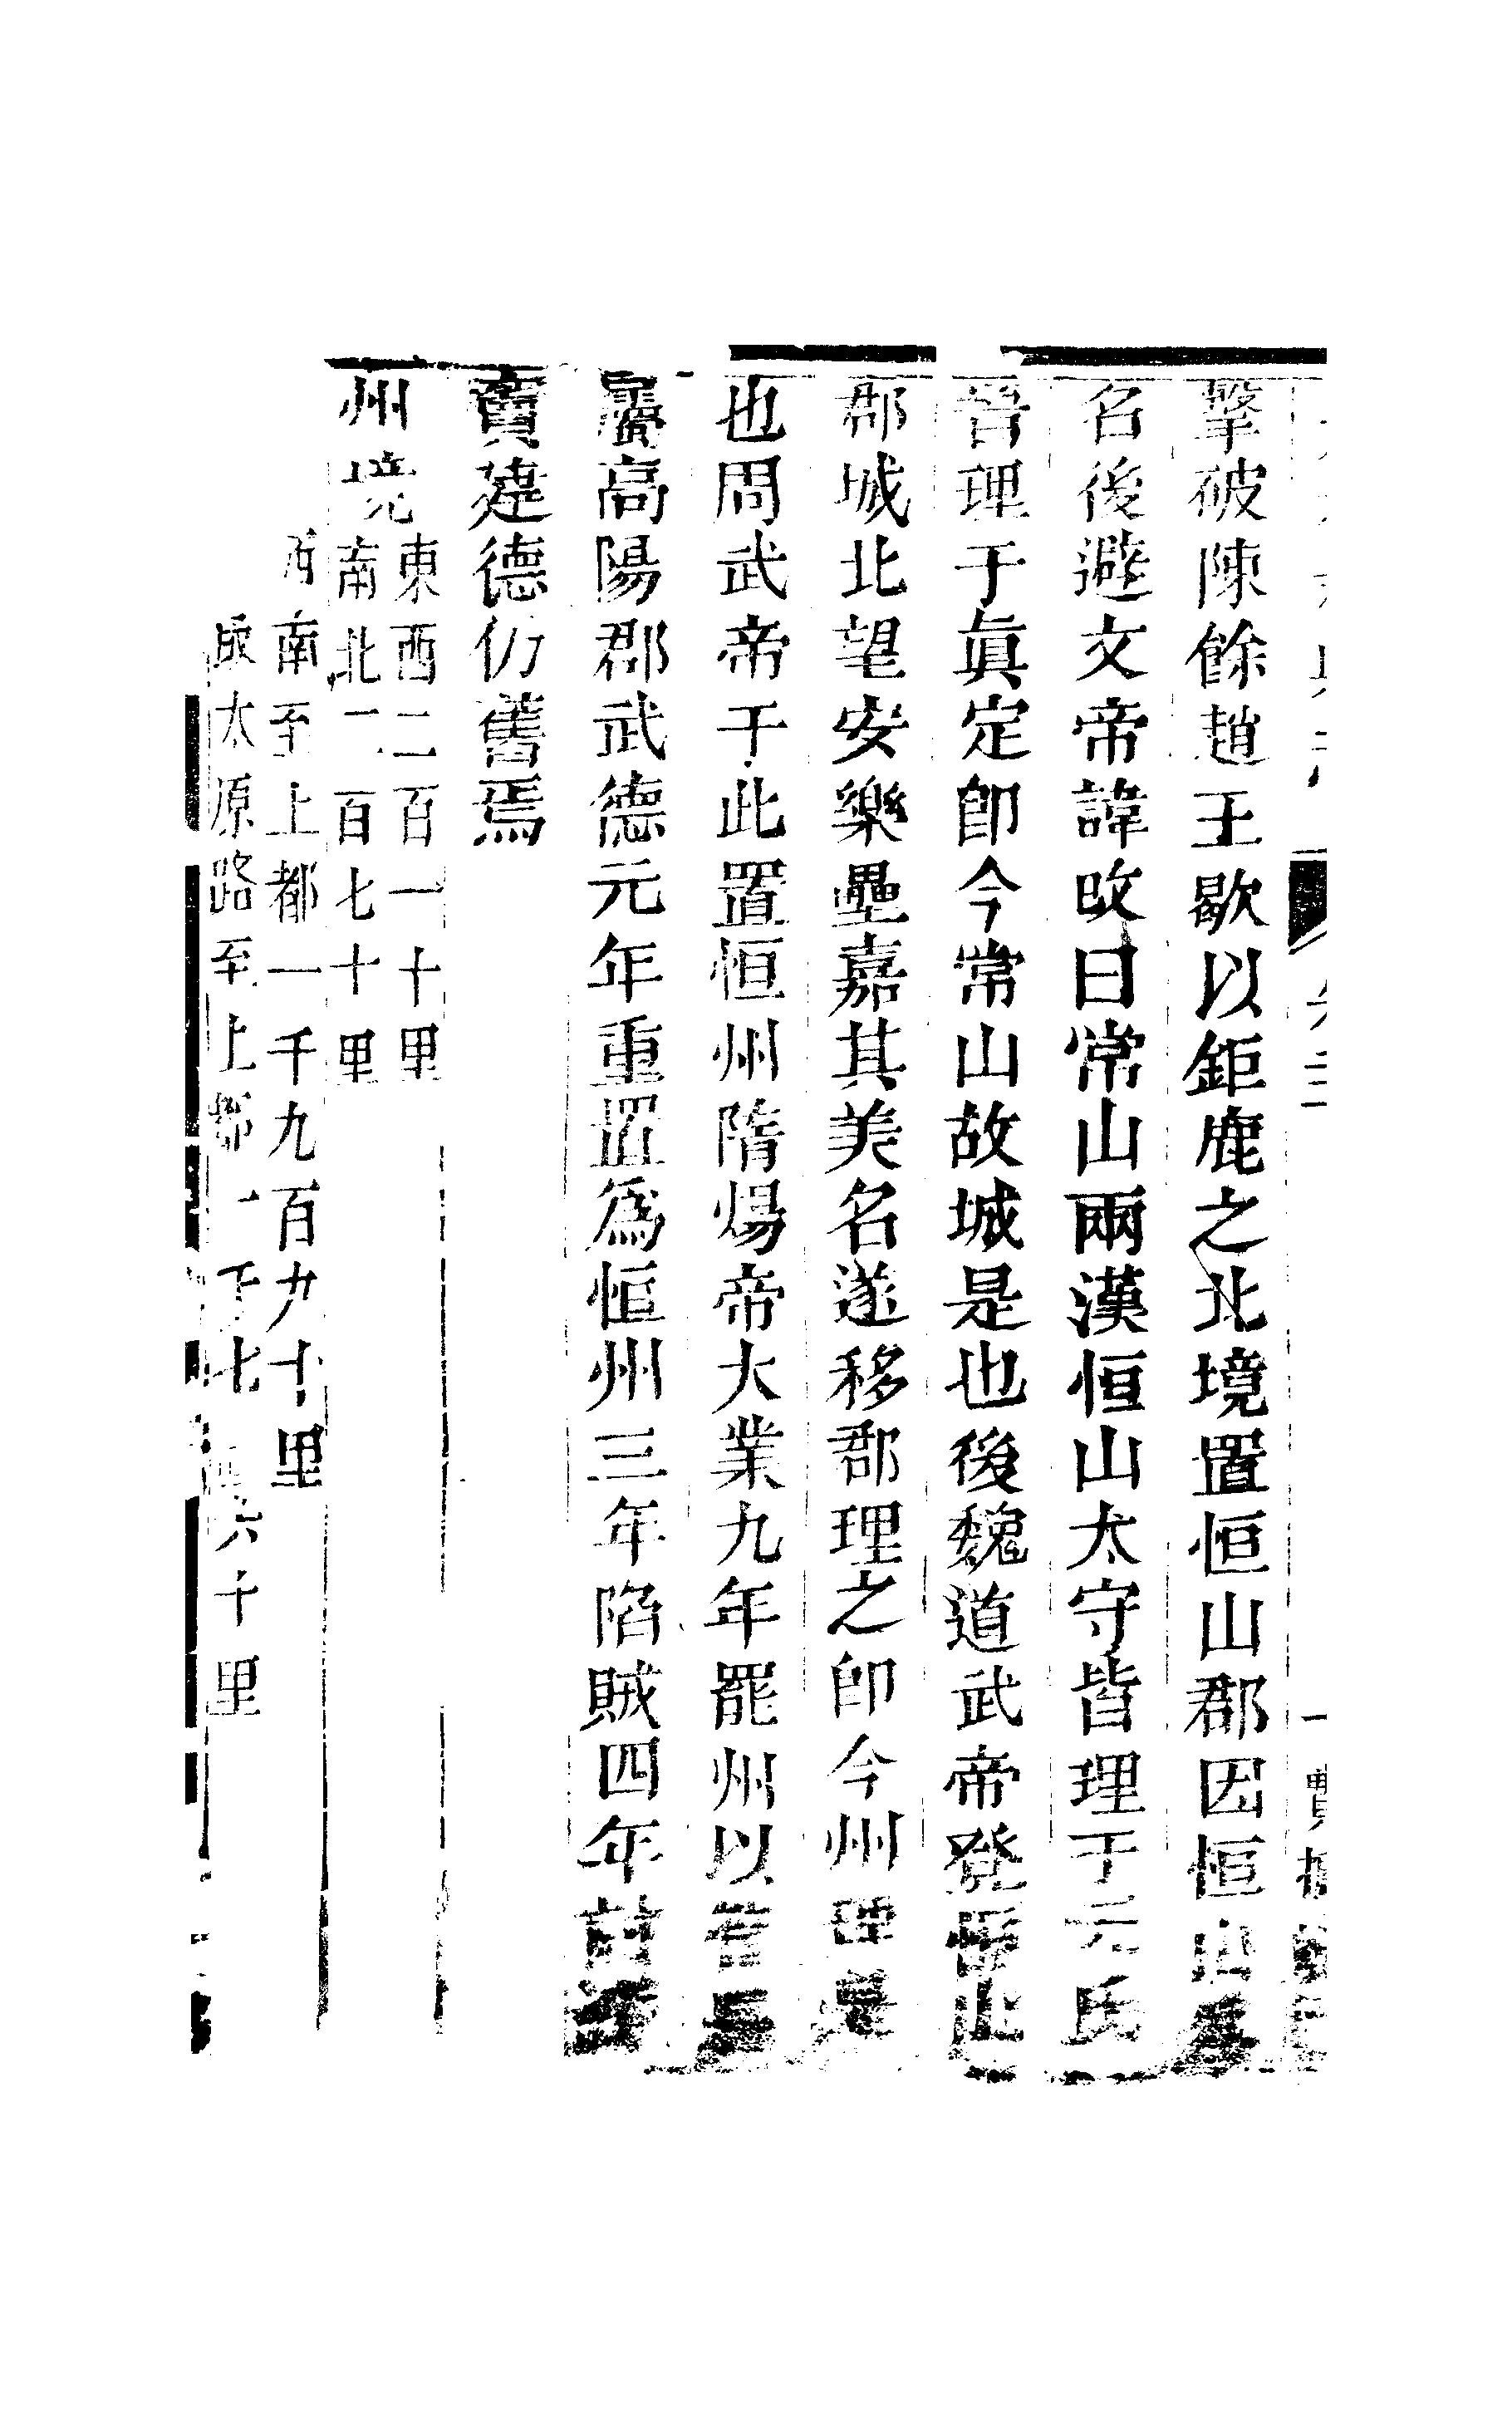 擊破陳餘趙王歇以鉅鹿之北境置恒山郡因恒山爲
名後避文帝諱改曰常山兩漢恒山太守皆理于元氏
晉理于眞定卽今常山故城是也後魏道武帝登恒山
郡城北望安樂壘嘉其美名遂移郡理之卽今州理是
也周武帝于此置恒州隋煬帝大業九年罷州以舊
屬高陽郡武德元年重置爲恒州三年陷賊四年討
竇建德仍舊焉
州境東西二百一十里
南北一百七十里
西南至上都一千九百九十里
取太原路至上都一千七百六十里